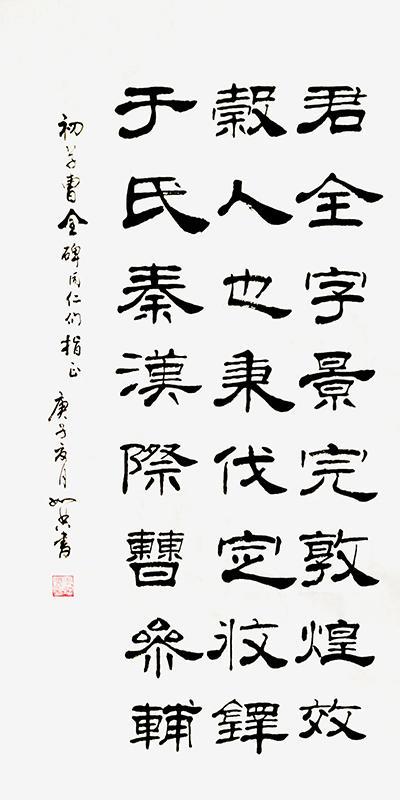 君全字景完敦煌效
穀人也秉伐定攸鐸
于氏秦漢際曹參輔
初学曹全碑同仁们指正 庚子夏月 书